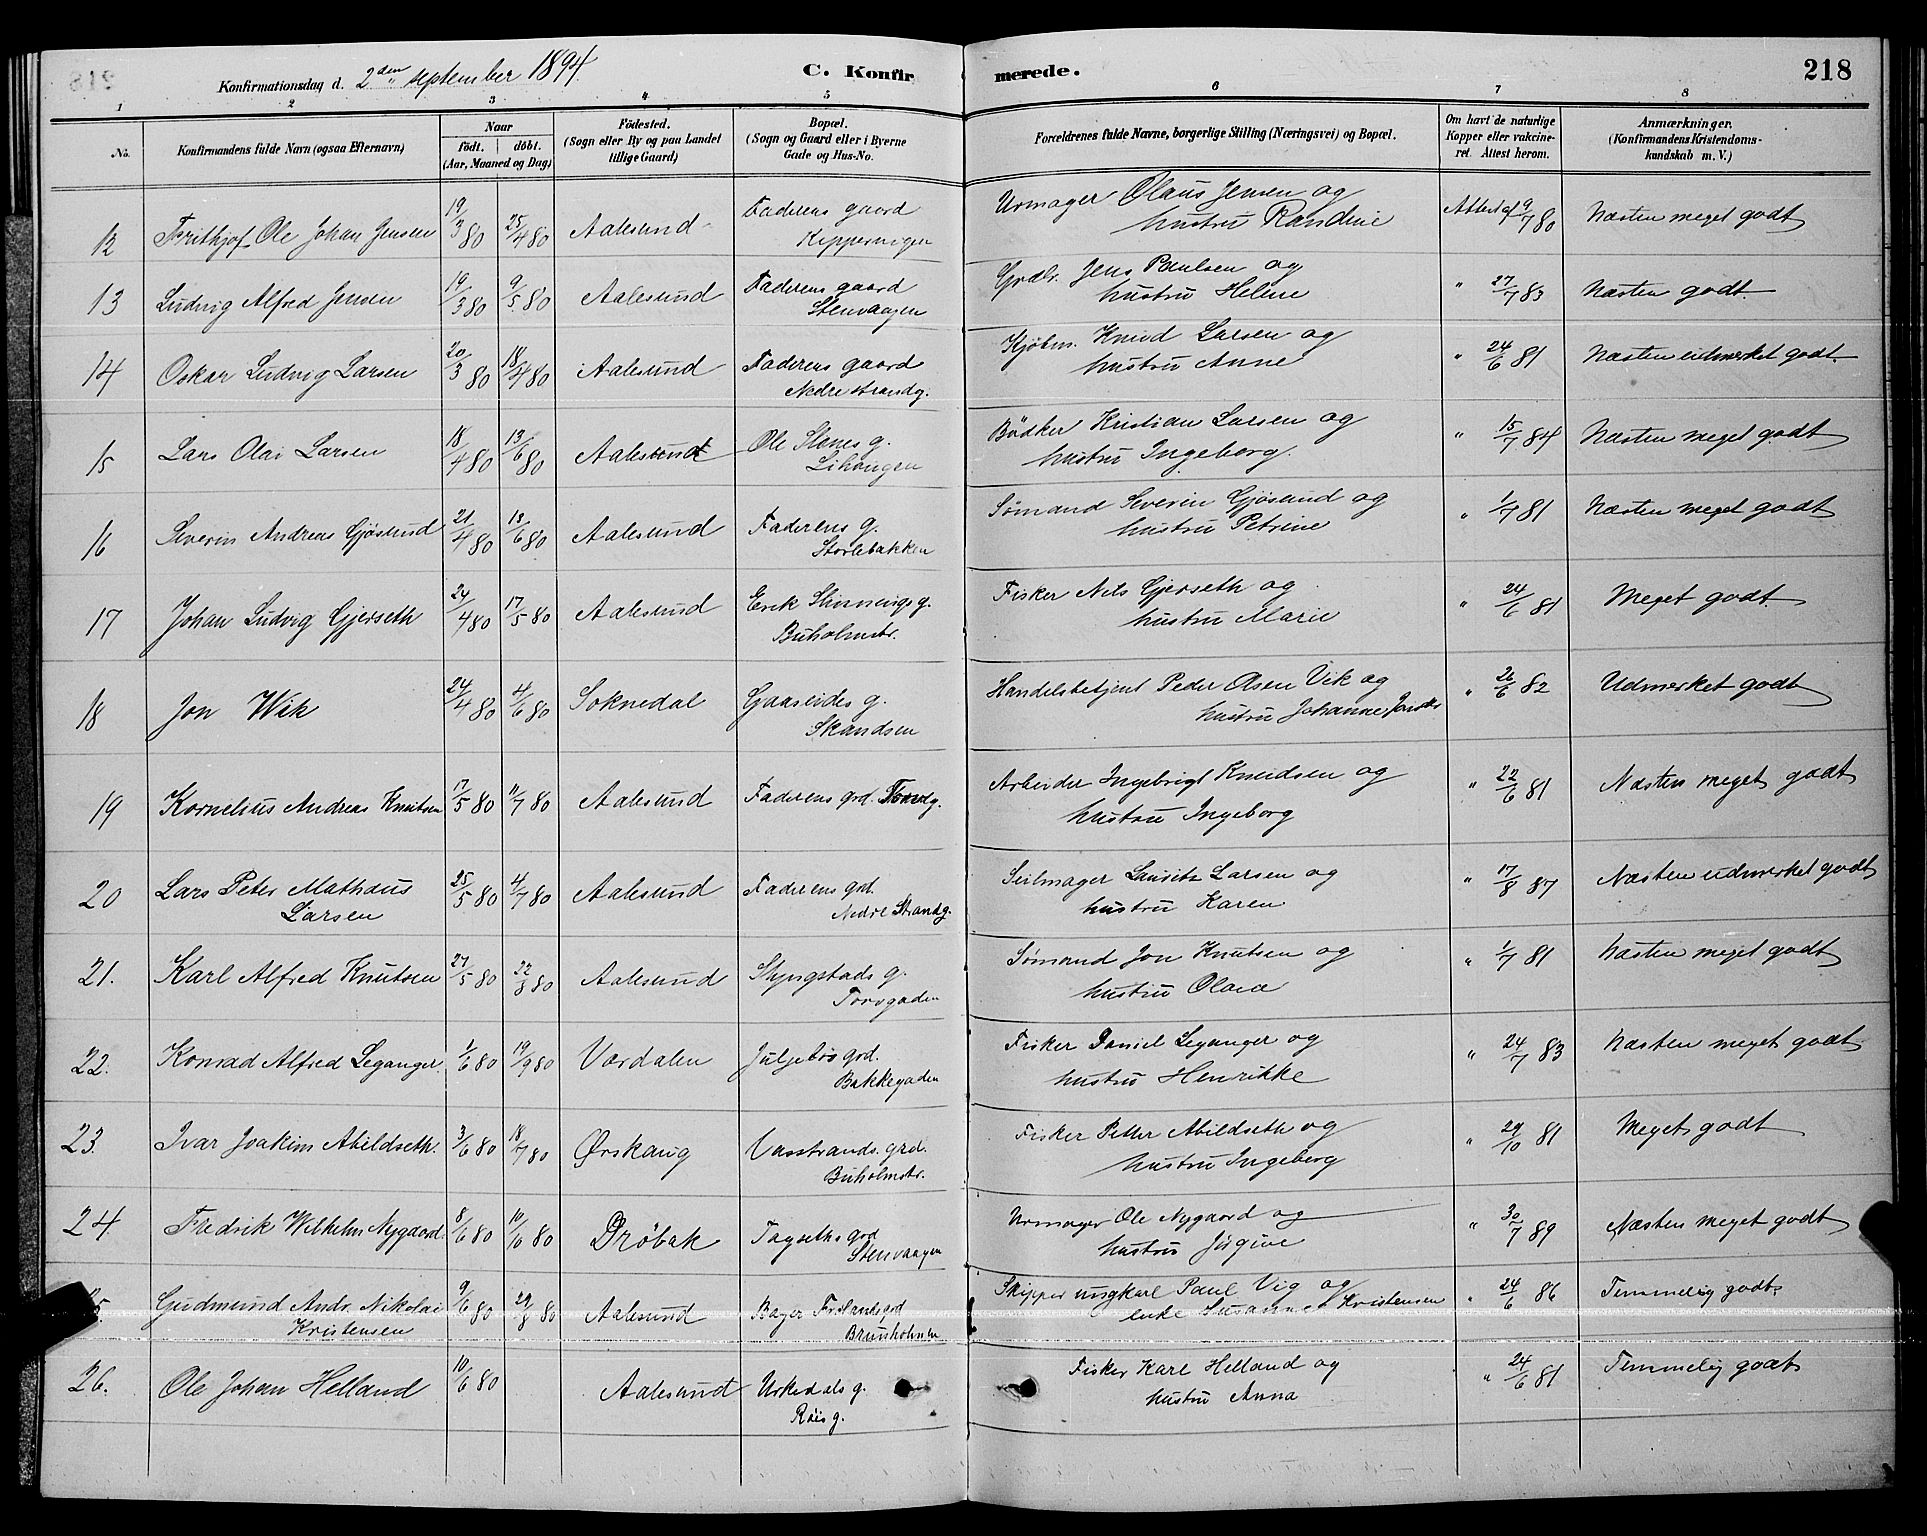 218
Konfirmationsdag d. 2den september 1894.
C. Konfirmerede.
1 2 3 4 5 6 7 8
No.
Konfirmandens fulde Navn (ogsaa Efternavn)
Naar
födt. döbt.
(Aar, Maaned og Dag)
Födested.
(Sogn eller By og paa Landet
tillige Gaard)
Bopæl.
(Sogn og Gaard eller i Byerne
Gade og Hus-No.
Forældrenes fulde Navne, borgerlige Stilling (Næringsvei) og Bopæl.
Om havt de naturlige
Kopper eller vakcine-
ret. Attest herom.
Anmærkninger.
(Konfirmandens Kristendoms-
kundskab m. V.)
12 Frithjof Ole Johan Jensen 19/3 80 25/4 80 Aalesund Faderens gaard Urmager Olaus Jensen og Attest af 9/7 80 Næsten meget godt
Kippervigen hustru Randine
13 Ludvig Alfred Jensen 19/3 80 9/5 80 Aalesund Faderens gaard Jens Paulsen og " 27/7 83 Næsten godt.
Stenvaagen hustru Helene
14 Oskar Ludvig Larsen 20/3 80 18/4 80 Aalesund Faderens gaard Kjøbm. Knud Larsen og " 24/6 81 Næsten udmerket godt
Nedre strandg. hustru Anne
15 Lars Olai Larsen 18/4 80 13/6 80 Aalesund Ole Stenes g. Bödker Kristian Larsen og " 15/7 84 Næsten meget godt
Lihougen hustru Ingeborg.
16 Severin Andreas Gjøsund 21/4 80 13/6 80 Aalesund Faderens g. Sømand Severin Gjøsund og " 1/7 81 Næsten meget godt
Storlebakken hustru Petrine
17 Johan Ludvig Gjerseth 24/4 80 17/5 80 Aalesund Erik g. Fisker Nils Gjerseth og " 24/6 81 Meget godt.
Buholmstr. hustru Marie
18 Jon Wik 24/4 80 4/6 80 Soknedal Gaaseides g. Handelsbetjent Peder Olsen Vik og " 26/6 82 Udmerket godt
Skandsen hustru Johanne
19 Kornelius Andreas Knutsen 17/5 80 11/7 80 Aalesund Faderens grd. Arbeider Ingebrigt Knudsen og " 22/6 81 Næsten meget godt
hustru Ingeborg
20 Lars Peter Mathæus 25/5 80 4/7 80 Aalesund Faderens grd. Seilmager Lauritz Larsen og " 17/8 87 Næsten udmerket godt
Larsen Nedre Strandg. hustru Karen
21. Karl Alfred Knutsen 27/5 80 22/8 80 Aalesund Slyngstads g. Sømand Jon Knutsen og " 1/7 81 Næsten meget godt
Torvgaden hustru Olava
22. Konrad Alfred Leganger 1/6 80 19/9 80 Værdalen Juljebös grd. Fisker Daniel Leganger og " 24/7 83 Næsten meget godt
Bakkegaden hustru Henrikke
23. Ivar Joakim Abildseth. 3/6 80 18/7 80 Ørskaug Vasstrands. grd. Fisker Petter Abildseth og " 29/10 81 Meget godt
Buholmstr. hustru Ingeborg
24. Fredrik Wilhelm Nygaard. 8/6 80 10/6 80 Drøbak Tagseths grd Urmager Ole Nygaard og " 30/7 89 Næsten meget godt
Stenvaagen hustru Jörgine
5. Gudmund Andr. Nikolai 9/6 80 29/8 80 Aalesund Bager Skipper ungkarl Paul Vig og " 24/6 86 Temmelig godt
Kristensen Brunholmen enke Susanne Kristensen
26. Ole Johan Helland 10/6 80 Aalesund Urkedals g. Fisker Karl Helland og " 24/6 81 Temmelig godt
Röis g. hustru Anna